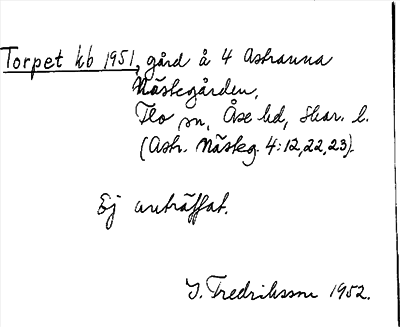 Torpet kb 1951, gård å 4 Astranna
Näskegården,
Flo sn, Åse hd, Skar. l.
(Astr. Näskeg. 4:12,22,23).
Ej anträffat.
I. Fredriksson 1952.